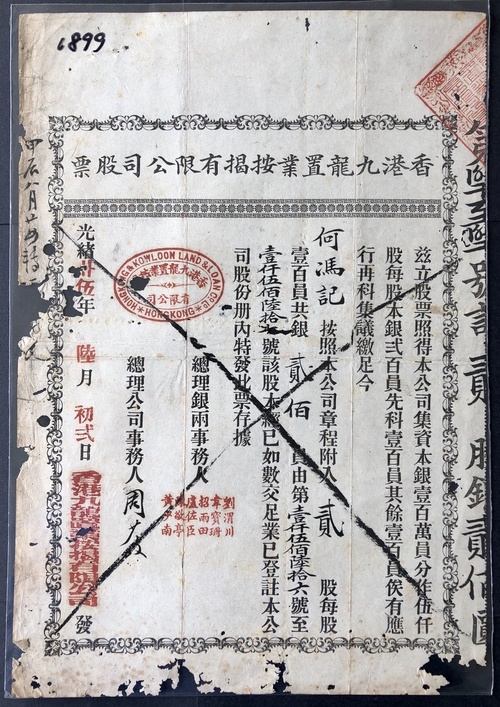 1899
香港九龍置業按揭有限公司股票
茲立股票照得本公司集資本銀壹百萬員分作伍仟
股每股本銀弍百員先科壹百員其餘壹百員俟有應
行再科集議繳足今
何馮記 按照本公司章程附入 貳 股每股
壹百員共銀 貳佰 員由第壹仟伍佰陸拾六號至
壹仟伍佰陸拾 號該股本經已如數交足業已登註本公
司股份冊內特發此票存據
HONGKONG & KOWLOON LAND & LOAN CO LD
香港九龍置業按揭
有限公司
HONGKONG
總理銀兩事務人
劉渭川
韋寶珊
招雨田
盧佐臣
陳敬亭
黃 南
總理公司事務人
光緒廿伍年 陸月 初弍日 香港九龍置業按揭有限公司 發
號計 貳 股銀貳佰圓